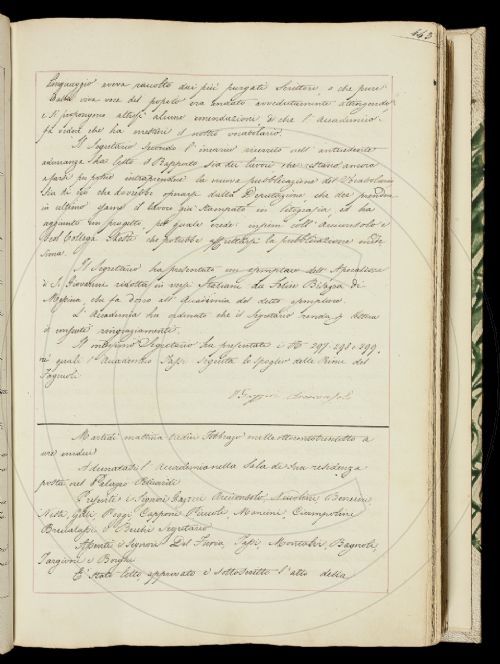 443
linguaggio aveva raccolto dai più purgati Scrittori, o che pure
dalla viva voce del popolo era andato avvedutamente attingendo
e si propongono altresì alcune emendazioni, che l'Accademico
fa vedere che ha mestieri il nostro vocabolario.
Il Segretario secondo l'incarico ricevuto nell'antecedente
adunanza ha letto il Rapporto sia dei lavori che restano ancora
a farsi per poter intraprendere la nuova pubblicazione del Vocabolario
sia di ciò che dovrebbe operarsi dalla Deputazione che dee prendere
in ultimo esame il lavoro già stampato in litografia ed ha
aggiunto un progetto, pel quale crede insieme coll'Arciconsolo e
col Collega che potrebbe effettuarsi la pubblicazione mede-
sima.
Il Segretario ha presentato un esemplare dell'Apocalisse
di S. Giovanni ridotta in versi Italiani da Felice Bisazza di
Messina, che fa dono all'Accademia del detto esemplare.
L'Accademia ha ordinato che il Segretario renda per lettera
i consueti ringraziamenti.
Il medesimo Segretario ha presentato i N.i 297. 298. e 299.
nei quali l'Accademico seguita lo spoglio delle Rime del
Fagiuoli.
Arciconsolo
Martedì mattina Febbraio milleottocentotrentotto a
ore undici
Adunatasi l'Accademia nella Sala di sua residenza
posta nel Palazzo Riccardi
Presenti i Signori Arciconsolo, Niccolini, Bencini,
Nesti, Gelli, Poggi, Capponi, Mancini, Ciampolini,
Brucalassi e Becchi Segretario
Assenti i Signori Del Furia, Montalvi, Bagnoli,
Targioni e Borghi
È stato letto approvato e sottoscritto l'atto della